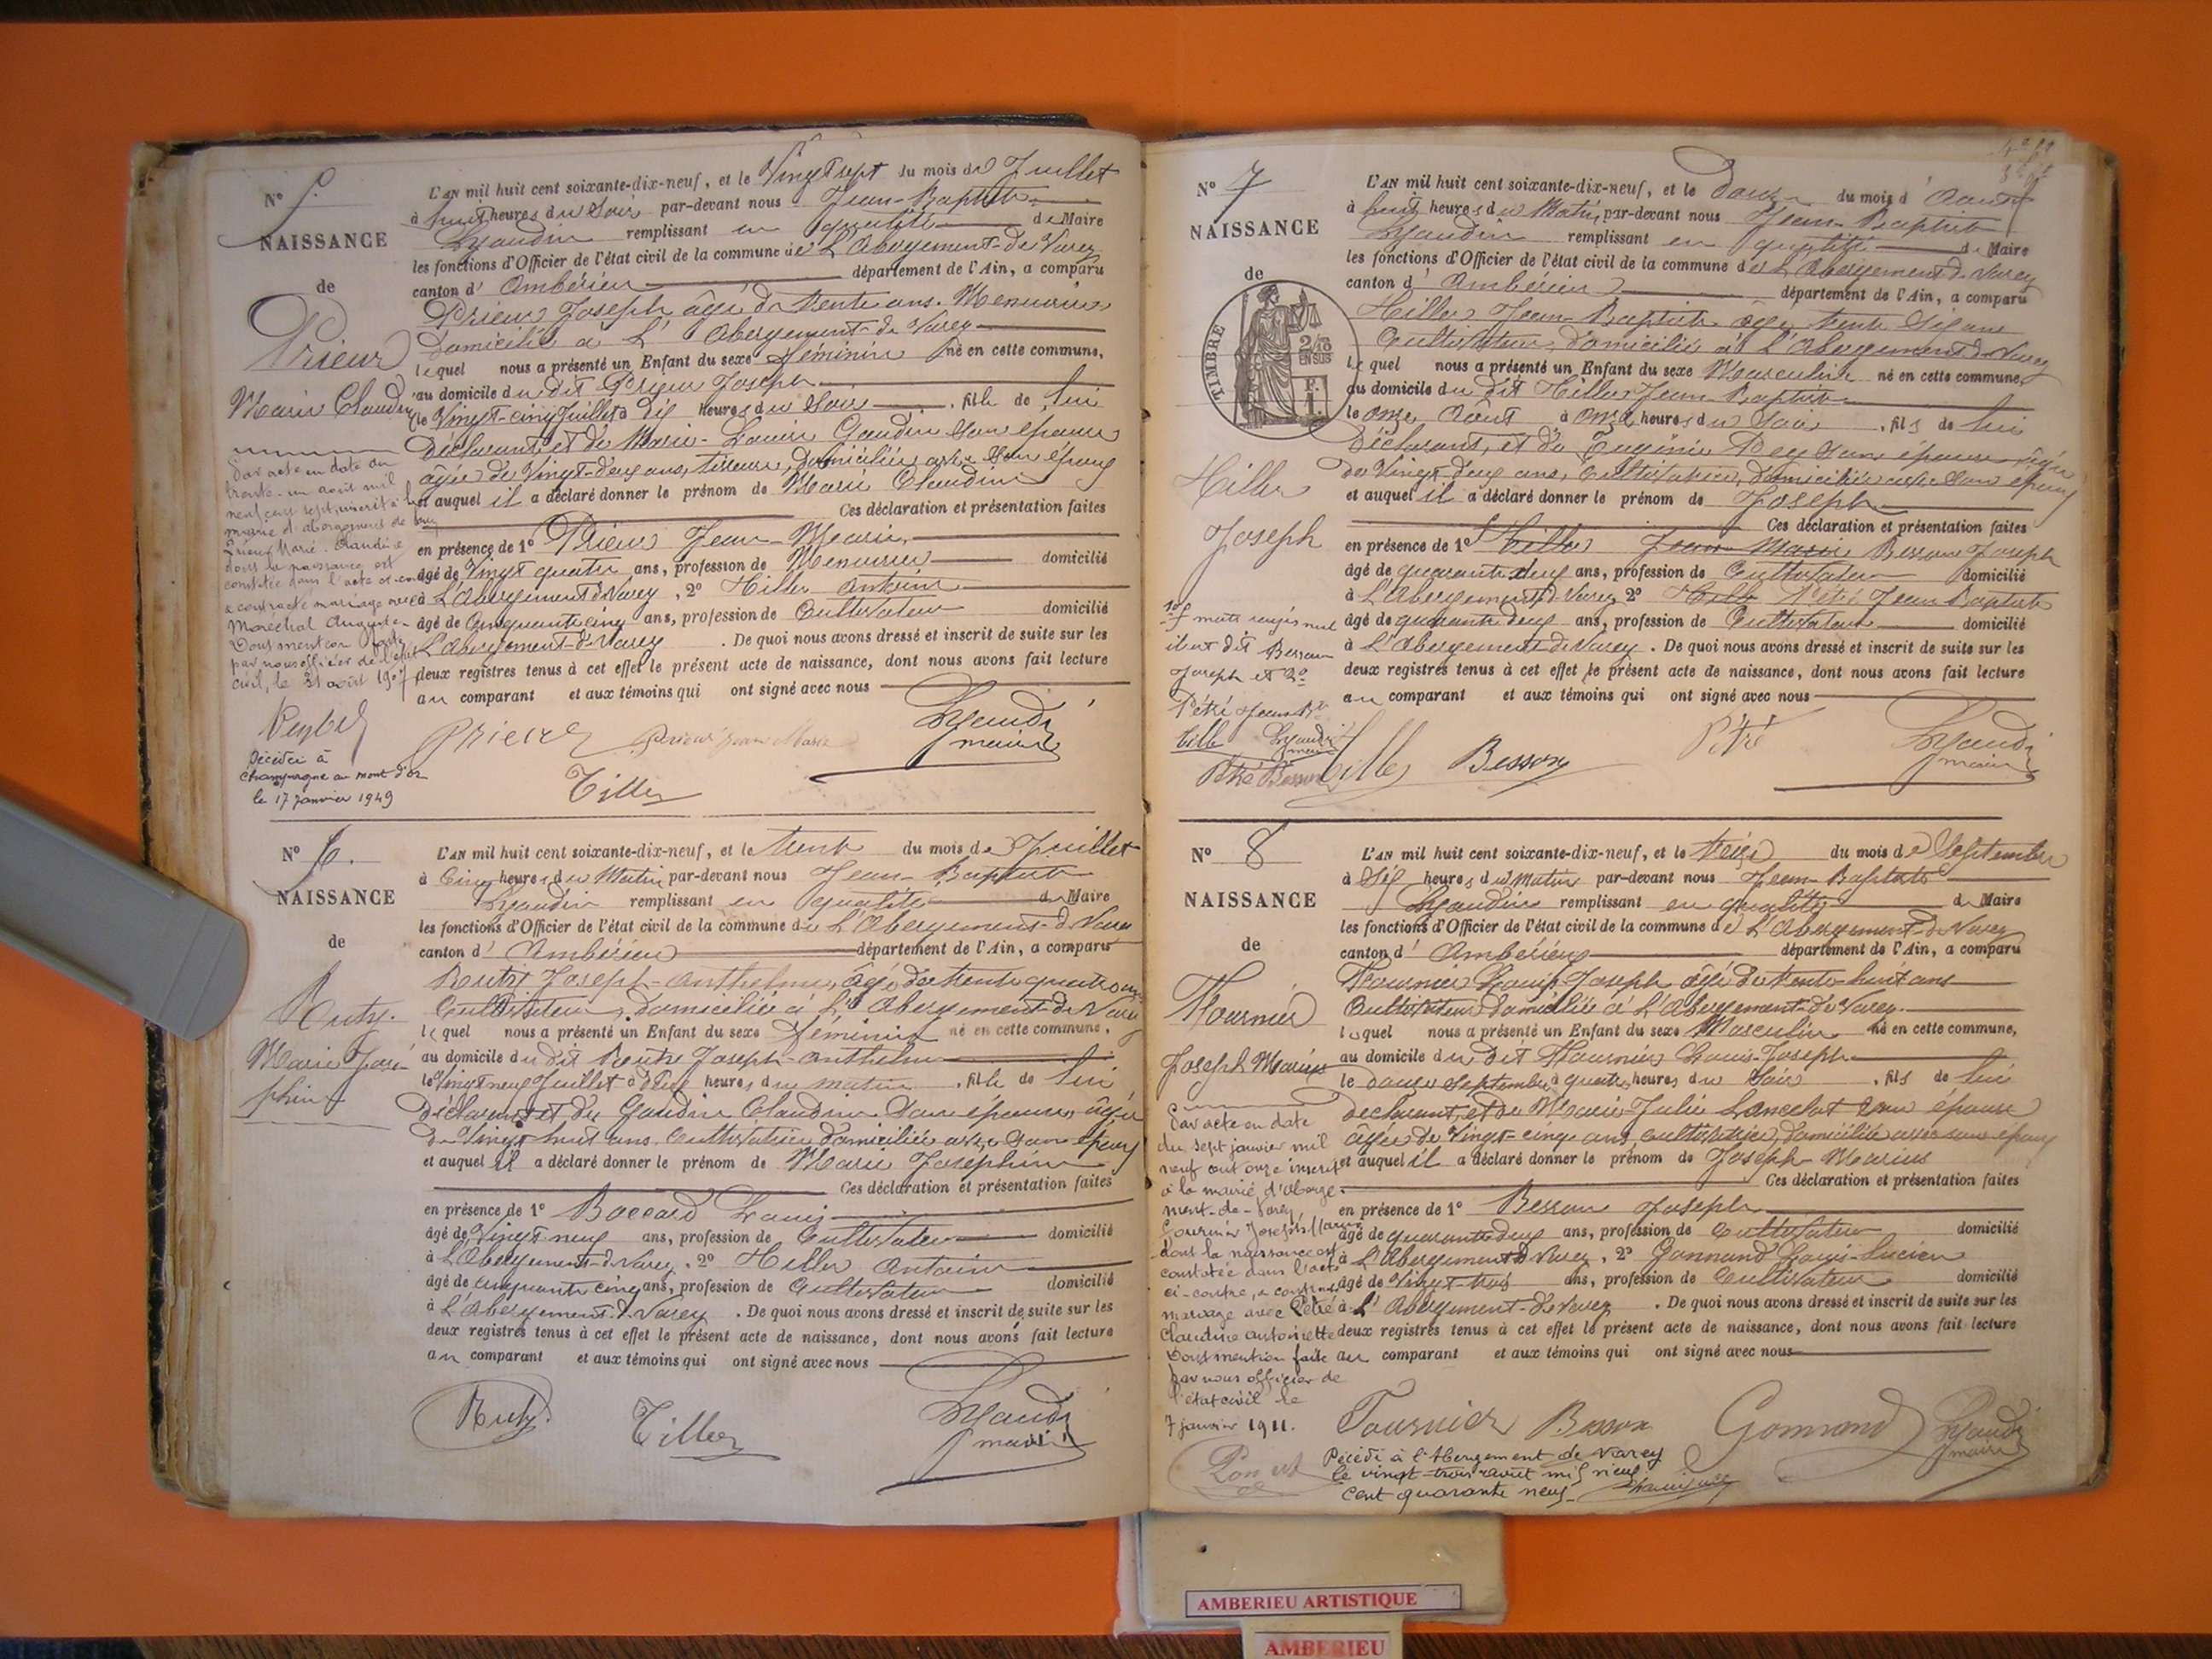 N° 5.
NAISSANCE
de
Prieur
Marie Claudine
L'AN mil huit cent soixante-dix-neuf, et le Vingt sept du mois de Juillet
à huit heures du Soir par-devant nous Jean-Baptiste
Gyaudin remplissant en qualité de Maire
les fonctions d'Officier de l'état civil de la commune de L'Abergement-de-Varey
canton d' Ambérieu département de l'Ain, a comparu
Prieur Joseph âgé de trente ans. Menuisier
domicilié à L'Abergement-de-Varey
lequel nous a présenté un Enfant du sexe féminin né en cette commune,
au domicile du dit Prieur Joseph
le Vingt-cinq Juillet à dix heures du Soir, fille de lui
Déclarant, et de Marie-Louise Gaudin son épouse
âgée de Vingt-deux ans, domiciliée avec son époux
et auquel il a déclaré donner le prénom de Marie Claudine
Ces déclaration et présentation faites
en présence de 1° Prieur Jean-Marie
âgé de Vingt quatre ans, profession de Menuisier domicilié
à L'Abergement de Varey, 2° Tiller Antoine
âgé de Cinquante cinq ans, profession de Cultivateur domicilié
à L'Abergement-de-Varey. De quoi nous avons dressé et inscrit de suite sur les
deux registres tenus à cet effet le présent acte de naissance, dont nous avons fait lecture
au comparant et aux témoins qui ont signé avec nous
Par acte en date du
trente-un août mil
neuf cent sept, inscrit à la
mairie d'abergement de Varey
Prieur Marie-Claudine
dont la naissance est
constatée dans l'acte ci-contre
a contracté mariage avec
Maréchal Auguste
Dont mention faite
par nous officier de l'état
civil, le 31 août 1907
Décédée à
Champagne au mont d'or
le 17 Janvier 1949
Prieur Prieur Jean Marie
Tiller
maire
N° 6.
NAISSANCE
de
Ruty.
Marie José-
phine
L'AN mil huit cent soixante-dix-neuf, et le trente du mois de Juillet
à Cinq heures du Matin par-devant nous Jean-Baptiste
Gyaudin remplissant en qualité de Maire
les fonctions d'Officier de l'état civil de la commune de L'Abergement-de-Varey
canton d' Ambérieu département de l'Ain, a comparu
Joseph-Anthelme, âgé de trente quatre ans
Cultivateur, domicilié à L'Abergement-de-Varey
lequel nous a présenté un Enfant du sexe féminin né en cette commune,
au domicile du dit Joseph-Anthelme
le Vingt neuf Juillet à heures du matin, fille de lui
Déclarant et de Gaudin Claudine son épouse, âgée
de Vingt huit ans Cultivatrice, domiciliée avec son époux
et auquel il a déclaré donner le prénom de Marie Joséphine
Ces déclaration et présentation faites
en présence de 1° Boccard Louis
âgé de Vingt neuf ans, profession de Cultivateur domicilié
à L'Abergement-de-Varey, 2° Tiller Antoine
âgé de cinquante cinq ans, profession de Cultivateur domicilié
à L'Abergement-de-Varey. De quoi nous avons dressé et inscrit de suite sur les
deux registres tenus à cet effet le présent acte de naissance, dont nous avons fait lecture
au comparant et aux témoins qui ont signé avec nous
Ruty. Tiller
maire
N° 7
NAISSANCE
de
TIMBRE
2/10
EN SUS
Tiller
Joseph
L'AN mil huit cent soixante-dix-neuf, et le Douze du mois d' Août
à huit heures du Matin, par-devant nous Jean-Baptiste
Gyaudin remplissant en qualité de Maire
les fonctions d'Officier de l'état civil de la commune de L'Abergement de Varey
canton d' Ambérieu département de l'Ain, a comparu
Tiller Jean-Baptiste âgé trente six ans
Cultivateur, domicilié à L'Abergement de Varey
lequel nous a présenté un Enfant du sexe Masculin né en cette commune,
au domicile du dit Tiller Jean-Baptiste
le onze Août à onze heures du Soir, fils de lui
Déclarant, et de Eugénie Dey son épouse âgée
de Vingt-deux ans, Cultivatrice, domiciliée avec son époux
et auquel il a déclaré donner le prénom de Joseph
Ces déclaration et présentation faites
en présence de 1° Tiller Jean-Marie Besson Joseph
âgé de quarante deux ans, profession de Cultivateur domicilié
à L'Abergement de Varey 2° Pétré Jean Baptiste
âgé de quarante deux ans, profession de Cultivateur domicilié
à L'Abergement de Varey. De quoi nous avons dressé et inscrit de suite sur les
deux registres tenus à cet effet le présent acte de naissance, dont nous avons fait lecture
au comparant et aux témoins qui ont signé avec nous
mots rayés nul
Besson
Joseph et 2°
Pétré Jean Bte
Tille
maire
Pétré Besson
Tiller Besson Pétré
maire
N° 8
NAISSANCE
de
Fournier
Joseph Marius
L'AN mil huit cent soixante-dix-neuf, et le treize du mois de Septembre
à Six heures du Matin par-devant nous Jean-Baptiste
Gyaudin remplissant en qualité de Maire
les fonctions d'Officier de l'état civil de la commune de L'Abergement de Varey
canton d' Ambérieu département de l'Ain, a comparu
Fournier Louis Joseph âgé de trente-huit ans
Cultivateur domicilié à L'Abergement-de-Varey
lequel nous a présenté un Enfant du sexe Masculin né en cette commune,
au domicile du dit Fournier Louis-Joseph
le douze Septembre à quatre heures du Soir, fils de lui
déclarant, et de Marie-Julie Lancelot son épouse
âgée de Vingt-cinq ans, cultivatrice, domiciliée avec son époux
et auquel il a déclaré donner le prénom de Joseph Marius
Ces déclaration et présentation faites
en présence de 1° Besson Joseph
âgé de quarante deux ans, profession de Cultivateur domicilié
à L'Abergement de Varey, 2° Gonnand Louis-Lucien
âgé de Vingt-trois ans, profession de Cultivateur domicilié
à L'Abergement-de Varey. De quoi nous avons dressé et inscrit de suite sur les
deux registres tenus à cet effet le présent acte de naissance, dont nous avons fait lecture
au comparant et aux témoins qui ont signé avec nous
Par acte en date
du sept janvier mil
neuf cent onze inscrit
à la mairie d'aberge-
ment-de-Varey
Fournier Joseph Marius
dont la naissance est
constatée dans l'acte
ci-contre, a contracté
mariage avec Pétré
Claudine antoinette
Dont mention faite
par nous officier de
l'état civil le
7 janvier 1911.
Fournier Besson Gonnand
maire
Décédé à l'Abergement de Varey
le vingt-trois août mil neuf
cent quarante neuf
AMBERIEU ARTISTIQUE
AMBERIEU